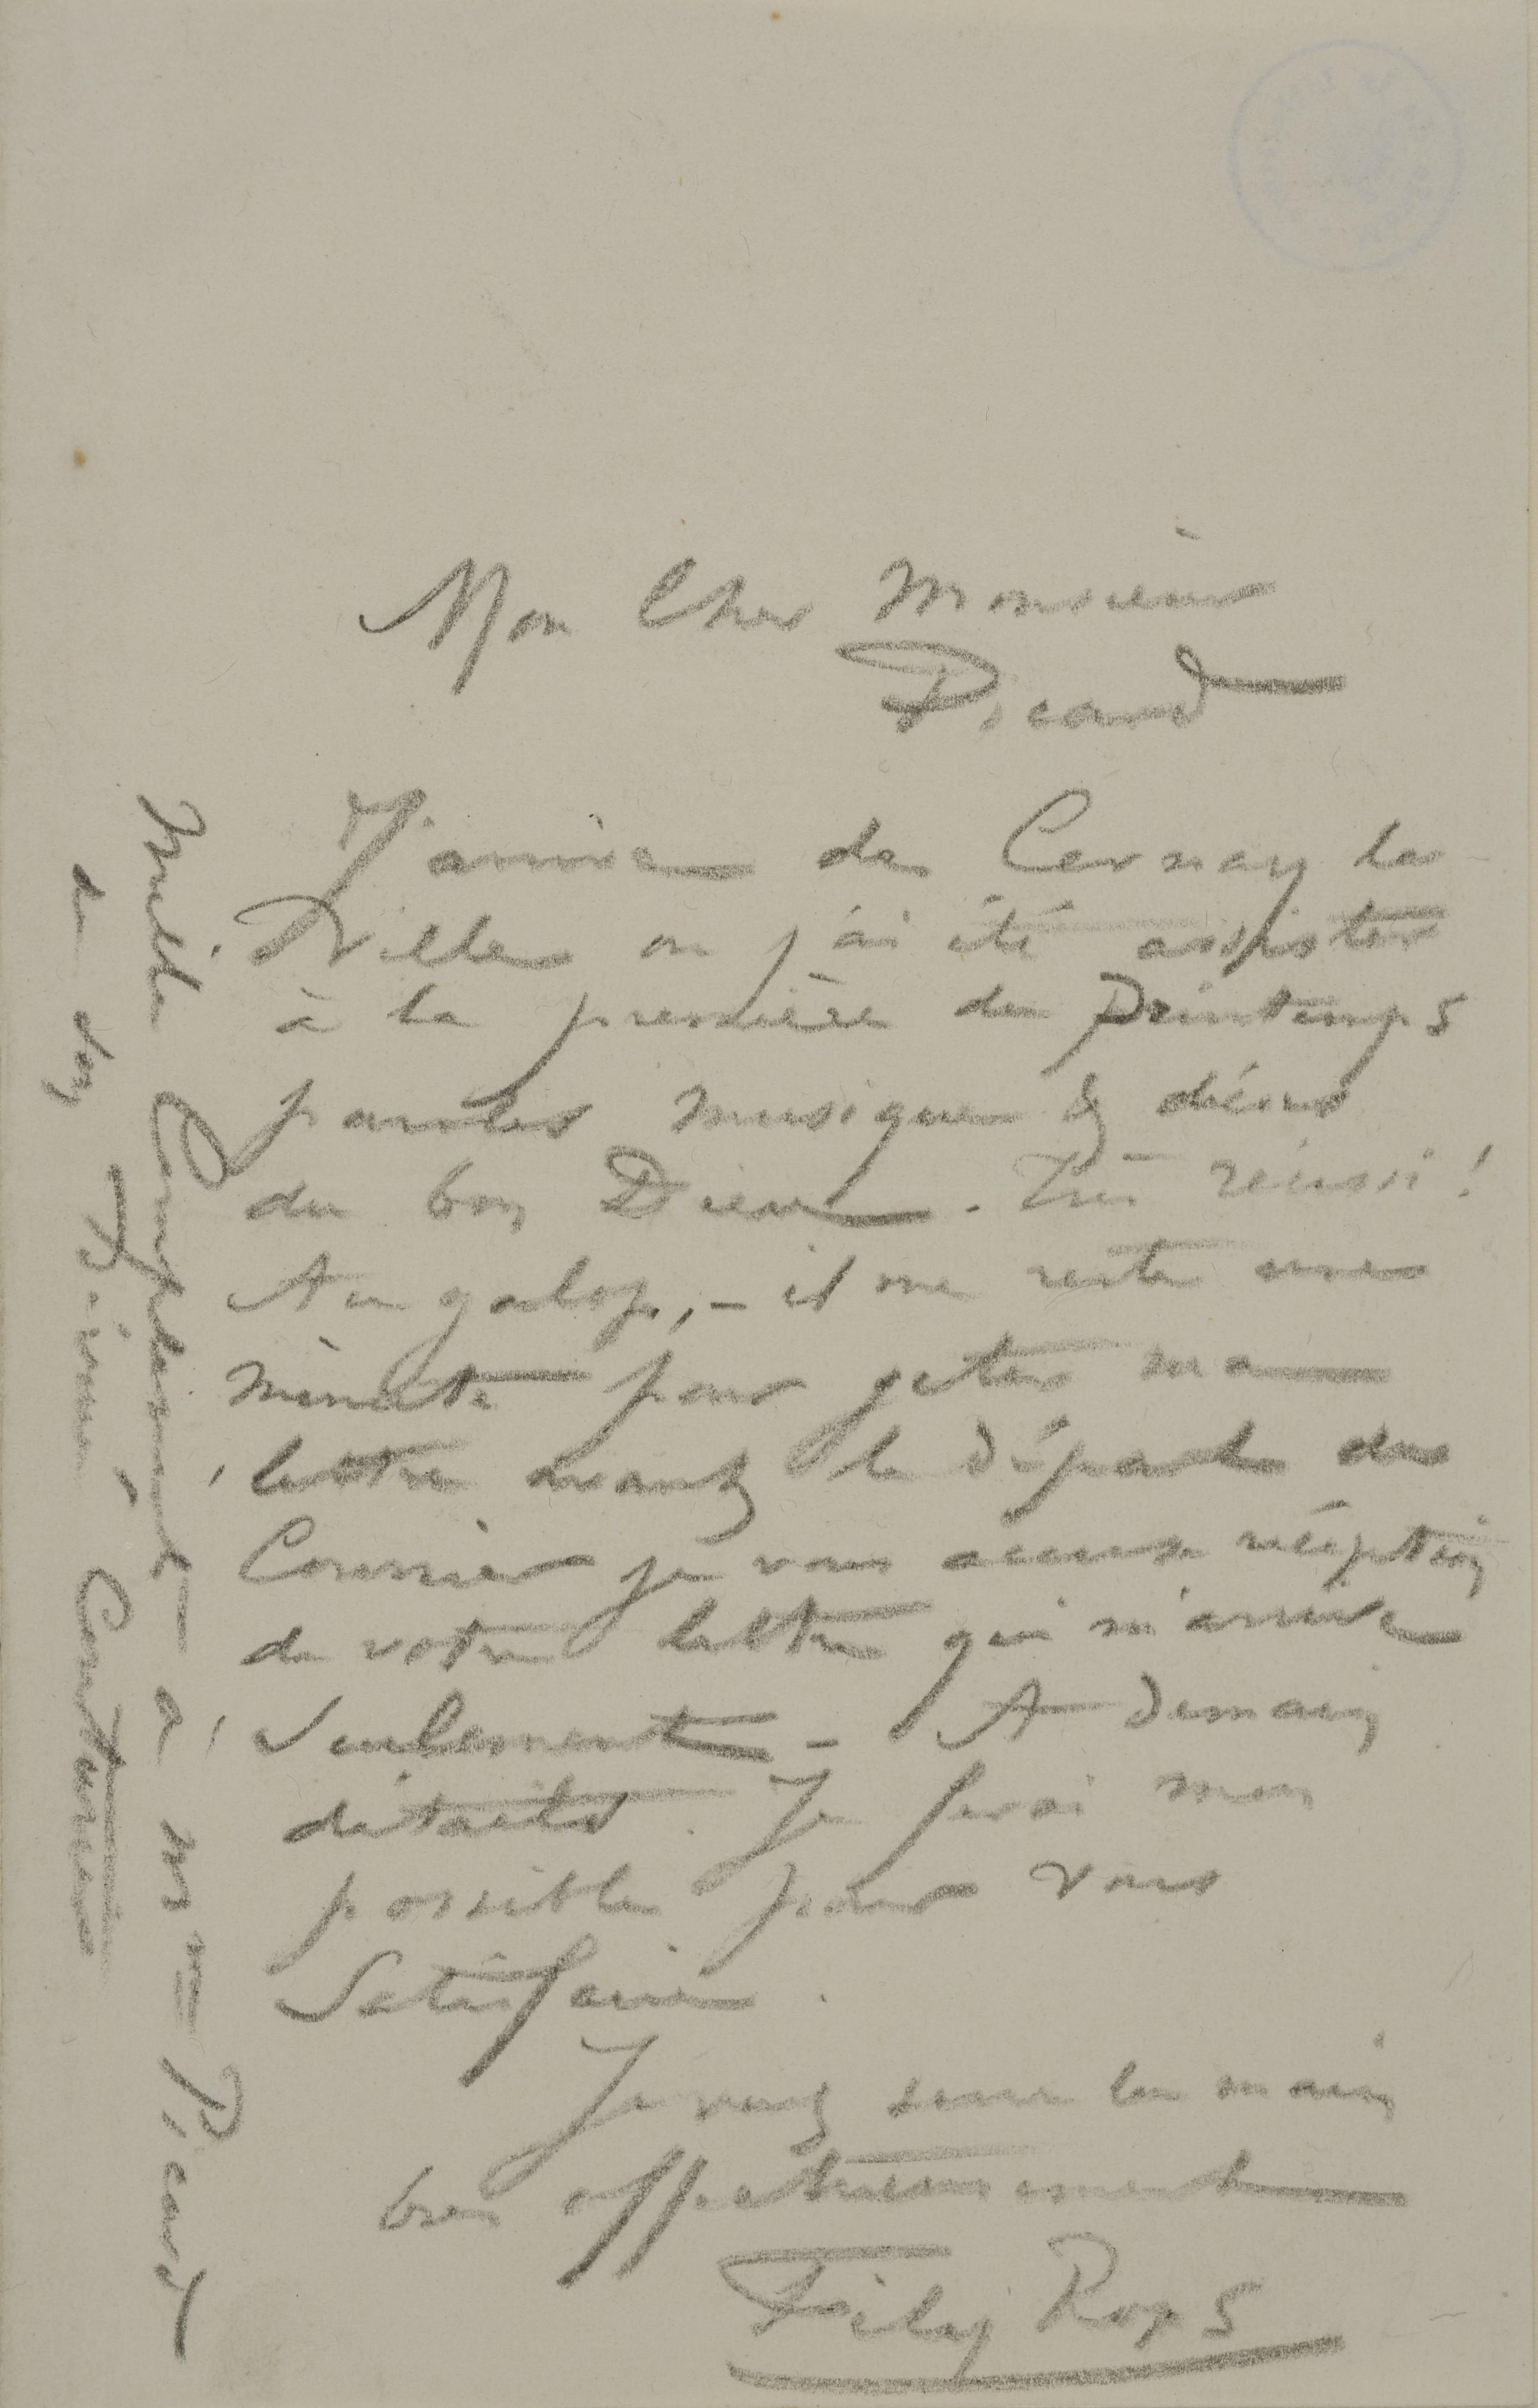 Mon Cher Monsieur
Picard
J'arrive de Cernay la
Ville où j'ai été assister
à la première du Printemps
paroles musique & décors
du bon Dieu. Très réussi !
Au galop, – il me reste une
minute pour jeter ma
lettre avant le départ du
Courrier je vous accuse réception
de votre lettre qui m'arrive
seulement – A demain
détails. Je ferai mon
possible pour vous
Satisfaire.
Je vous serre la main
bien affectueusement
Félicien Rops
Mille Compliments à Mme Picard